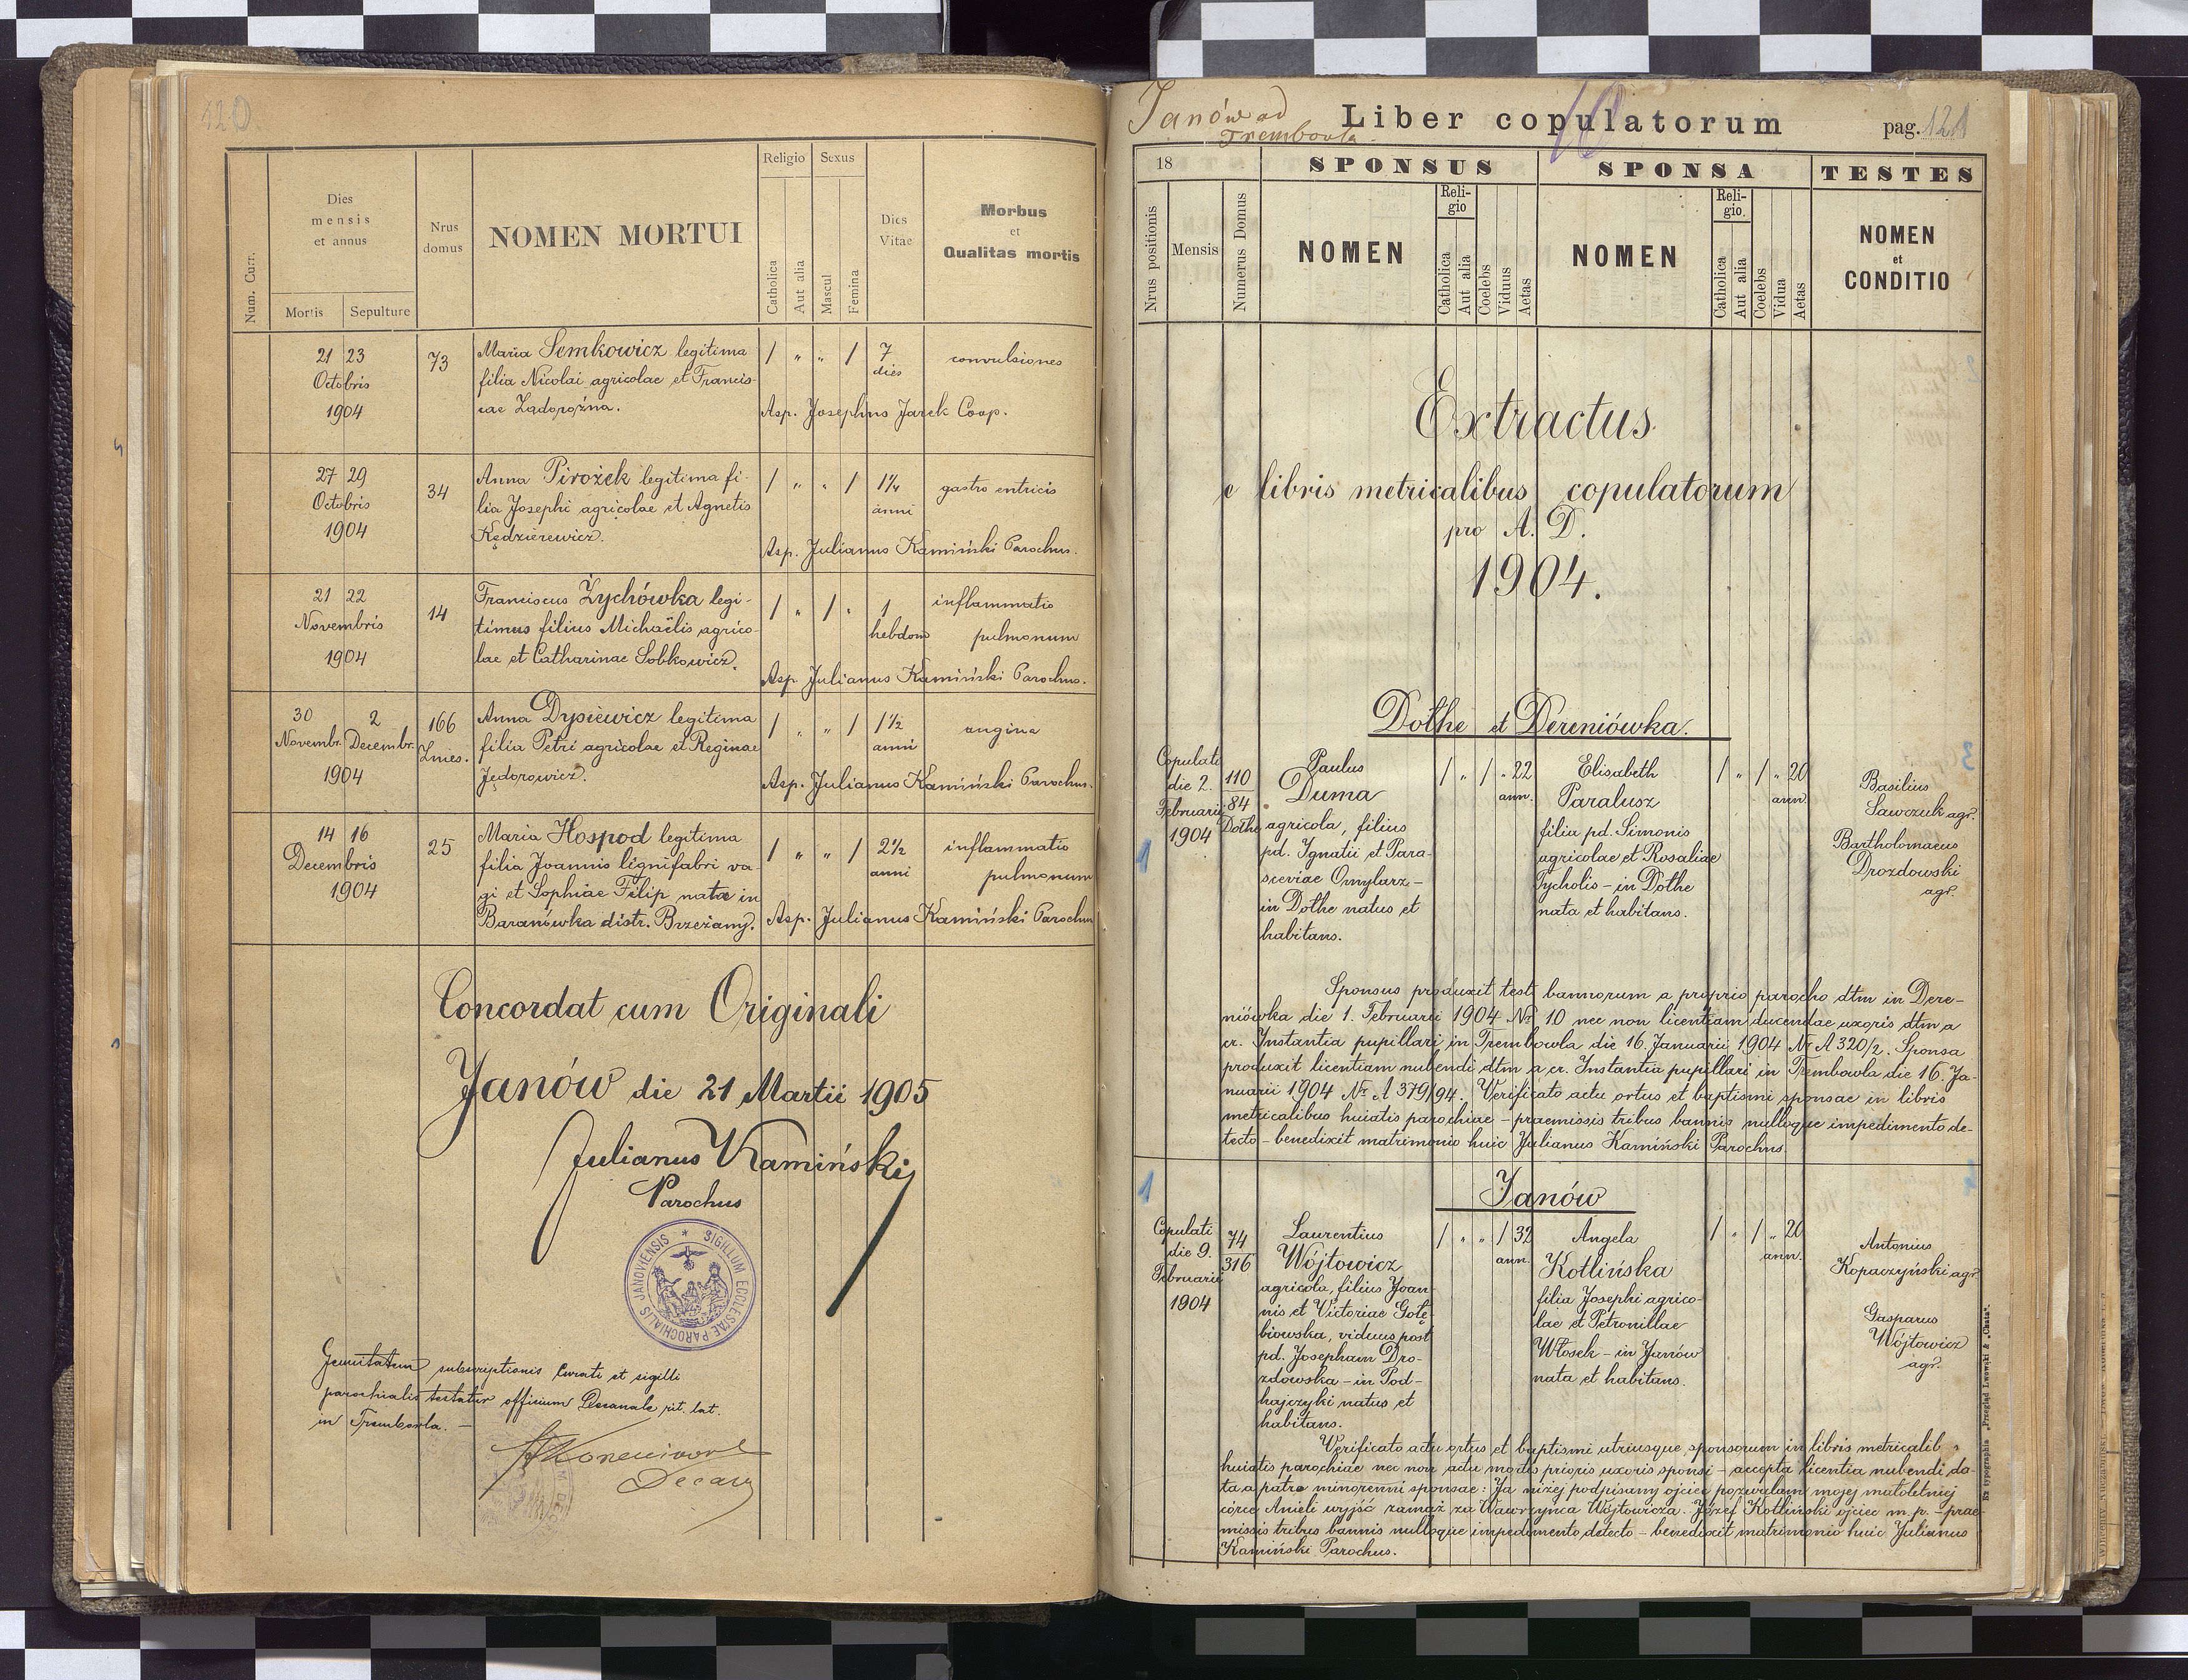 120
Num. Curr.
Dies
mensis
et annus
Mortis
Sepulture
Nrus
domus
NOMEN MORTUI
Religio
Sexus
Catholica
Aut alia
Mascul
Femina
Dies
Vitae
Morbus
et
Qualitas mortis
21 23
Octobris
1904
73
Maria Semkowicz legitima
filia Nicolai agricolae et Francis-
cae Zadorożna.
/ " " /
7
dies
convulsiones
Asp. Josephus Jarek Coop.
27 29
Octobris
1904
34
Anna Pirożek legitima fi-
lia Josephi agricolae et Agnetis
Kędzierewicz.
/ " " /
1¼
anni
gastro entricis
Asp. Julianus Kamiński Parochus.
21 22
Novembris
1904
14
Franciscus Żychówka legi-
timus filius Michaëlis agrico-
lae et Catharinae Sobkowicz.
/ " / "
1
hebdom
inflammatio
pulmonum
Asp. Julianus Kamiński Parochus.
30 2
Novembr. Decembr.
1904
166
Znies.
Anna Dypiewicz legitima
filia Petri agricolae et Reginae
Jędorowicz.
/ " " /
1½
anni
angina
Asp. Julianus Kamiński Parochus.
14 16
Decembris
1904
25
Maria Hospod legitima
filia Joannis lignifabri va-
gi et Sophiae Filip nata in
Baranówka distr. Brzeżany.
/ " " /
2½
anni
inflammatio
pulmonum
Asp. Julianus Kamiński Parochus
Concordat cum Originali
Janów die 21 Martii 1905
Julianus Kamiński
Parochus
SIGILLUM ECCLESIAE PAROCHIALIS JANOVIENSIS
Genuitatem subscriptionis Curati et sigilli
parochialis testatur officium Decanale rit. lat.
in Trembowla. —
Decan
Janów ad
Trembowla
Liber copulatorum
10
pag. 121
18
SPONSUS
SPONSA
TESTES
Nrus positionis
Mensis
Numerus Domus
NOMEN
Reli-
gio
Catholica
Aut alia
Coelebs
Viduus
Aetas
NOMEN
Reli-
gio.
Catholica
Aut alia
Coelebs
Vidua
Aetas
NOMEN
et
CONDITIO
Extractus
e libris metricalibus copulatorum
pro A. D.
1904.
Dołhe et Dereniówka.
1
Copulati
die 2.
Februarii
1904
110
84
Dołhe
Paulus
Duma
agricola, filius
pd. Ignatii et Para-
sceviae Omylarz -
in Dołhe natus et
habitans.
/ " / " 22
ann.
Elisabeth
Paralusz
filia pd. Simonis
agricolae et Rosaliae
Tycholis - in Dołhe
nata et habitans.
/ " / " 20
ann.
Basilius
Sawczuk agr.
Bartholomaeus
Drozdowski
agr.
Sponsus produxit test. bannorum a proprio parocho dtm in Dere-
niówka die 1. Februarii 1904 Nr 10 nec non licentiam ducendae uxoris dtm a
cr. Instantia pupillari in Trembowla die 16. Januarii 1904 Nr A 320/2. Sponsa
produxit licentiam nubendi dtm a cr. Instantia pupillari in Trembowla die 16. Ja-
nuarii 1904 Nr A 379/94. Verificato actu ortus et baptismi sponsae in libris
metricalibus huiatis parochiae - praemissis tribus bannis nulloque impedimento de-
tecto - benedixit matrimonio huic Julianus Kamiński Parochus.
1
Janów
Copulati
die 9.
Februarii
1904
74
316
Laurentius
Wójtowicz
agricola, filius Joan
nis et Victoriae Gołę
biowska, viduus post
pd. Josepham Dro-
zdowska - in Pod-
hajczyki natus et
habitans.
/ " " / 32
ann.
Angela
Kotlińska
filia Josephi agrico-
lae et Petronillae
Włosek - in Janów
nata et habitans.
/ " / " 20
ann.
Antonius
Kopaczyński agr.
Gasparus
Wójtowicz
agr.
Verificato actu ortus et baptismi utriusque sponsorum in libris metricalib.
huiatis parochiae nec non actu mortis prioris uxoris sponsi - accepta licentia nubendi da-
ta a patre minorenni sponsae: Ja niżej podpisany ojciec pozwalam mojej małoletniej
córce Anieli wyjść zamąż za Wawrzyńca Wójtowicza. Józef Kotliński ojciec m. p. - prae-
missis tribus bannis nulloque impedimento detecto - benedixit matrimonio huic Julianus
Kamiński Parochus.
Ex typographia „Przegląd Lwowski & „Chata".